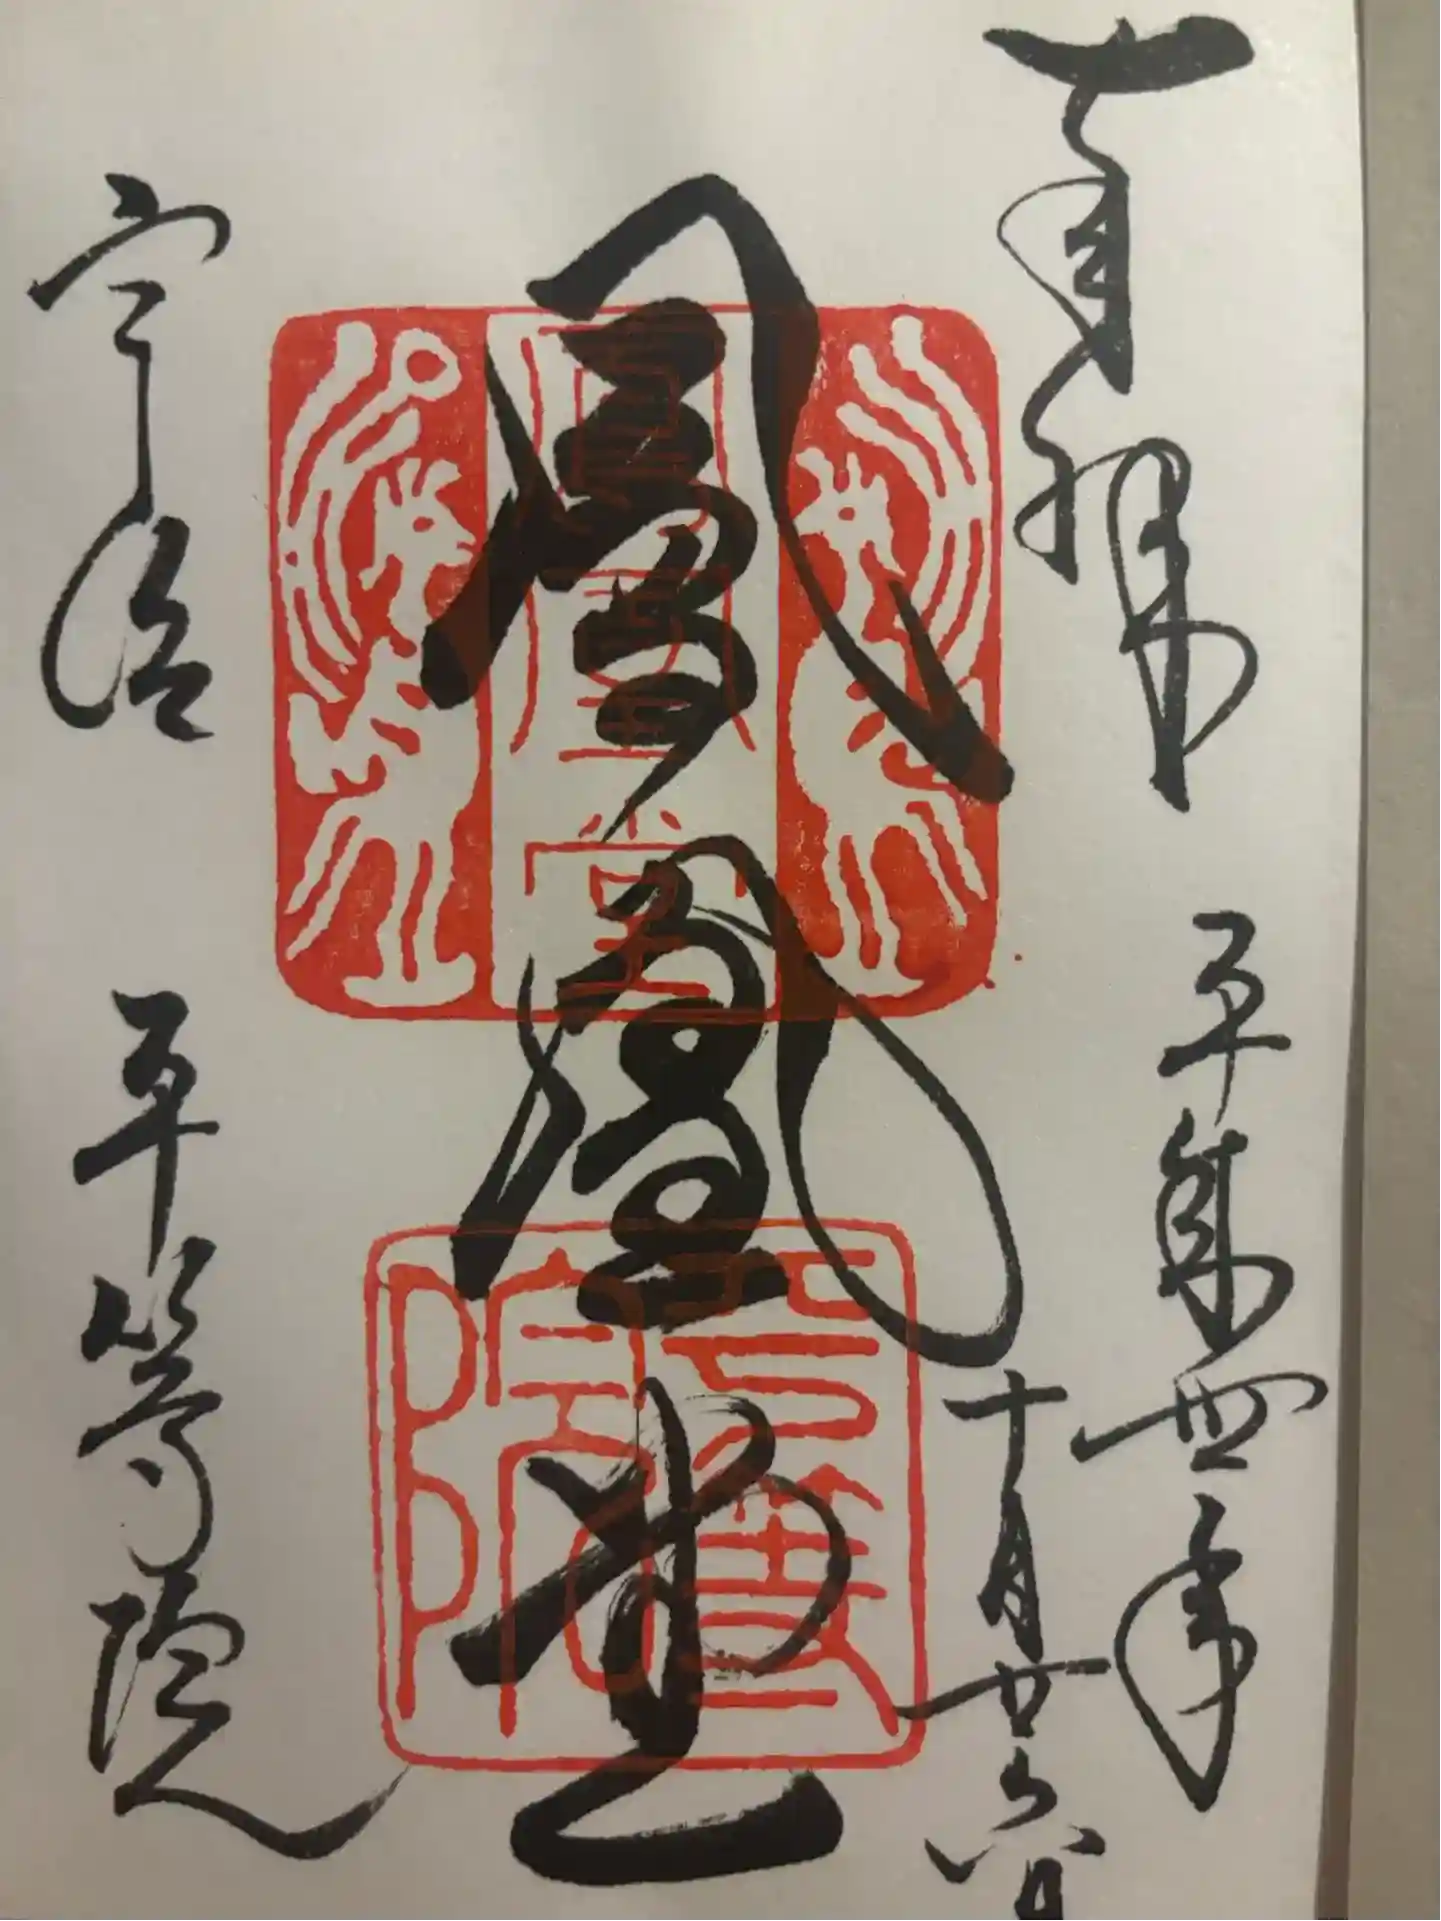 奉拝 平成四年
十月廿六日
鳳凰堂
宇治 平等院
鳳凰堂
平等院